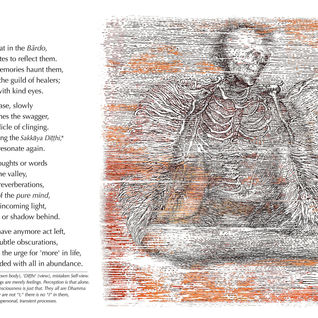 at in the Bārdo,
tes to reflect them.
emories haunt them,
the guild of healers;
with kind eyes.
ase, slowly
nes the swagger,
icle of clinging.
ng the Sakkāya Diṭṭhi,*
resonate again.
oughts or words
he valley,
reverberations,
of the pure mind,
incoming light,
or shadow behind.
ave anymore act left,
ubtle obscurations,
the urge for 'more' in life,
ded with all in abundance.
own body), 'Diṭṭhi' (view), mistaken Self-view.
ngs are merely feelings. Perception is that alone.
nsciousness is just that. They all are Dhamma
are not "I," there is no "I" in them,
personal, transient processes.